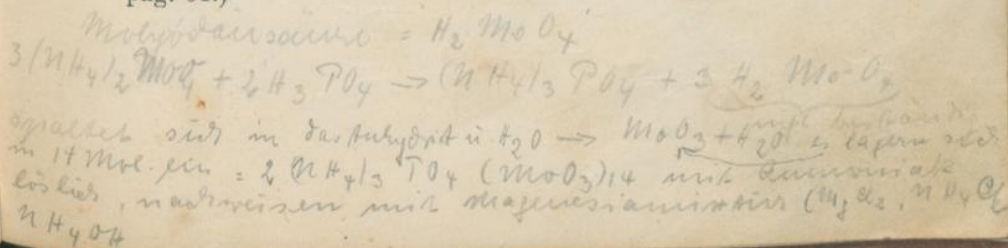 pag. 61.)
Molybdänsäure = H2 Mo O4
3(NH4)2 MoO4 + 2H3 PO4 → (NH4)3 PO4 + 3 H2 Mo O4
nicht beständig
spaltet sich in das Anhydrit u H2O → MoO3 + H2O es lagern sich
14 Mol. ein = 2(NH4)3 PO4 (MoO3)14 mit Ammoniak
löslich, nachweisen mit Magnesiamixtur (Mg Cl2, NH4Cl
NH4OH